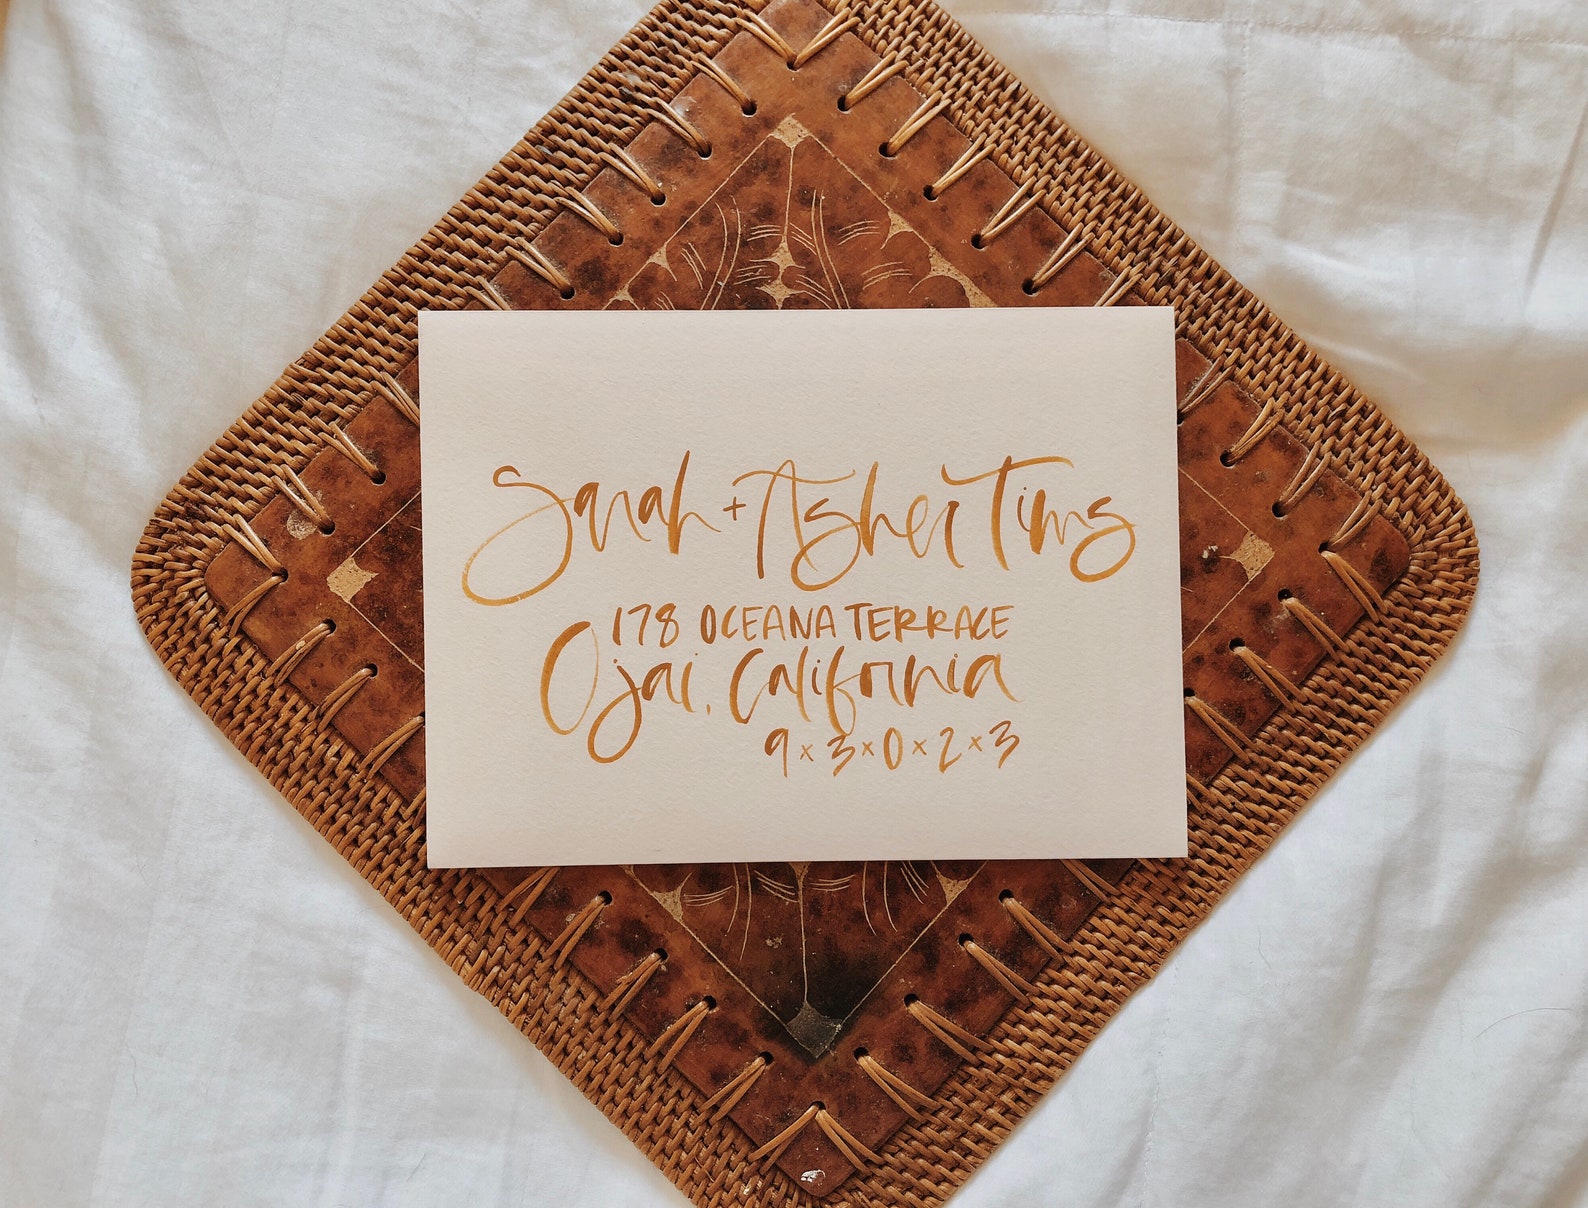 Sarah + Asher Tims
178 OCEANA TERRACE
Ojai, California
9x3x0x2x3